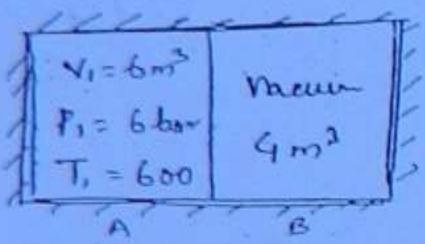 V₁ = 6m³
P₁ = 6 bar
T₁ = 600
Vacuum
4 m³
A
B